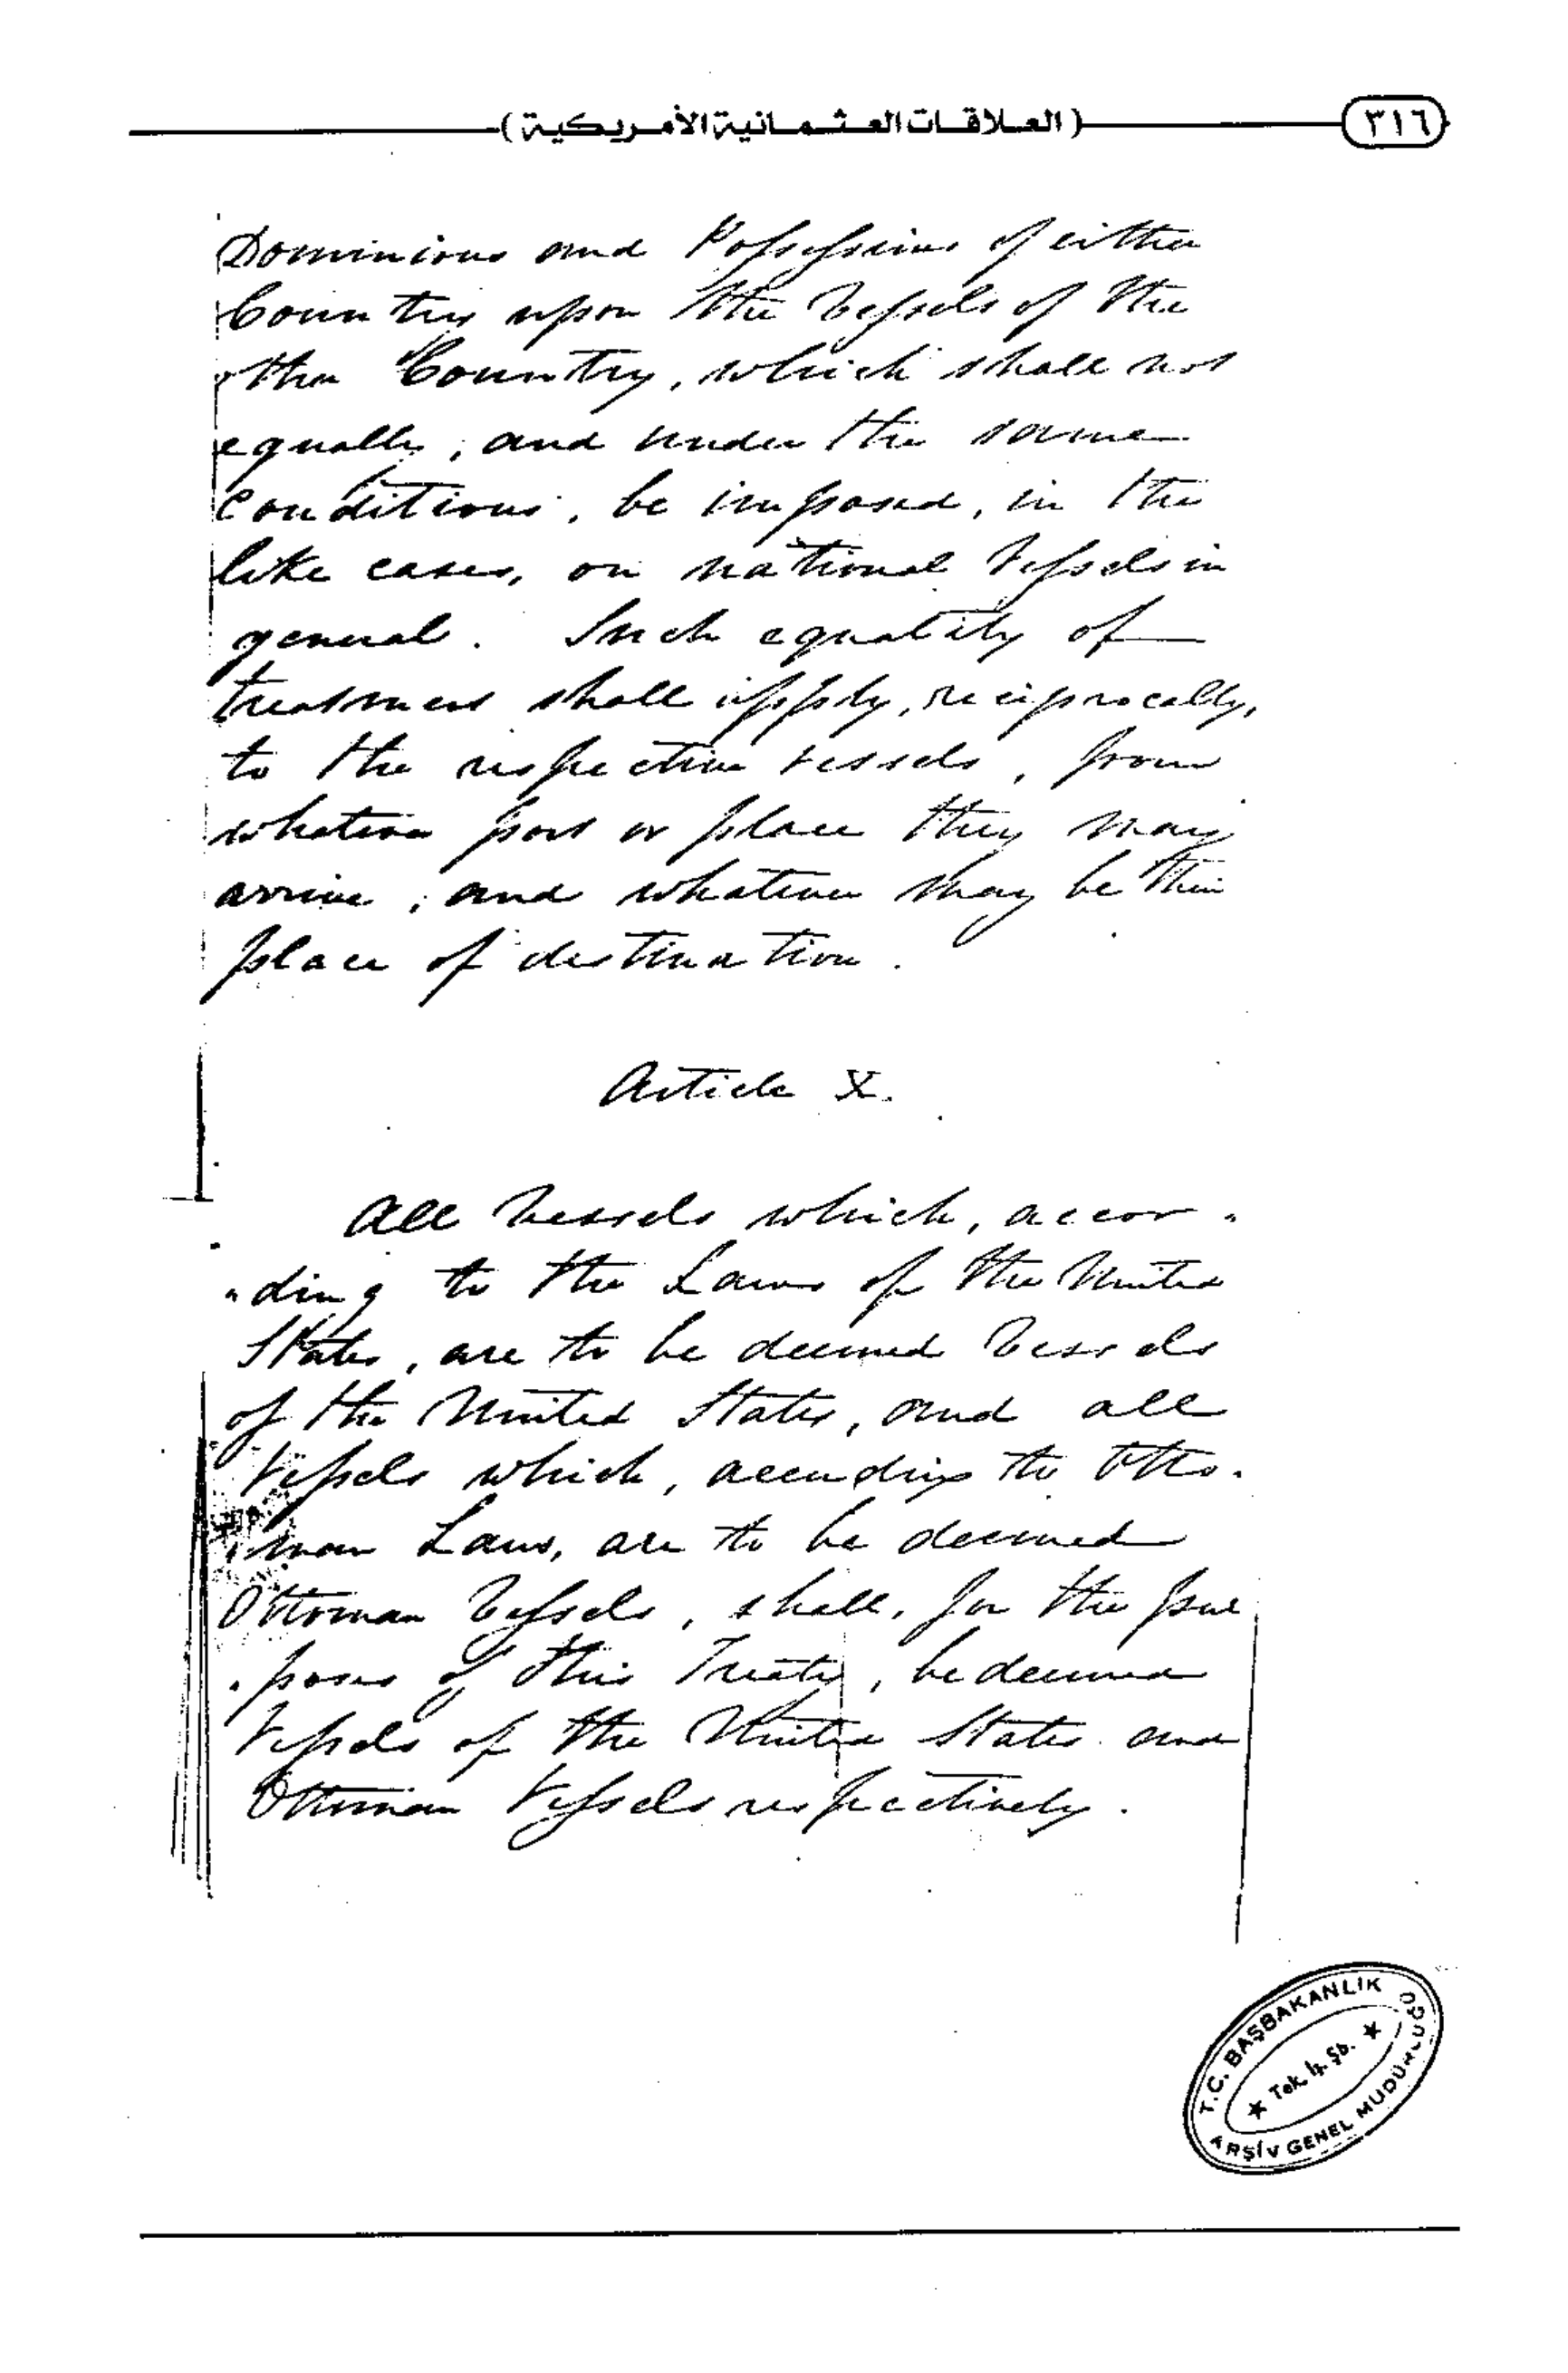 (العلاقات العثمانية الأمريكية)
٣١٦
Dominions and Possessions of either
Country upon the Vessels of the
other Country, which shall not
equally, and under the same
conditions, be imposed, in the
like cases, on national Vessels in
general. Such equality of
treatment shall apply, reciprocally,
to the respective vessels, from
whatever port or place they may
arrive, and whatever may be their
place of destination.
Article X.
All Vessels which, accor-
-ding to the Laws of the United
States, are to be deemed Vessels
of the United States, and all
Vessels which, according to Otto-
-man Laws, are to be deemed
Ottoman Vessels, shall, for the pur
-poses of this Treaty, be deemed
Vessels of the United States and
Ottoman Vessels respectively.
T.C. BAŞBAKANLIK
★ Tek. İş. Şb. ★
ARŞİV GENEL MÜDÜRLÜĞÜ